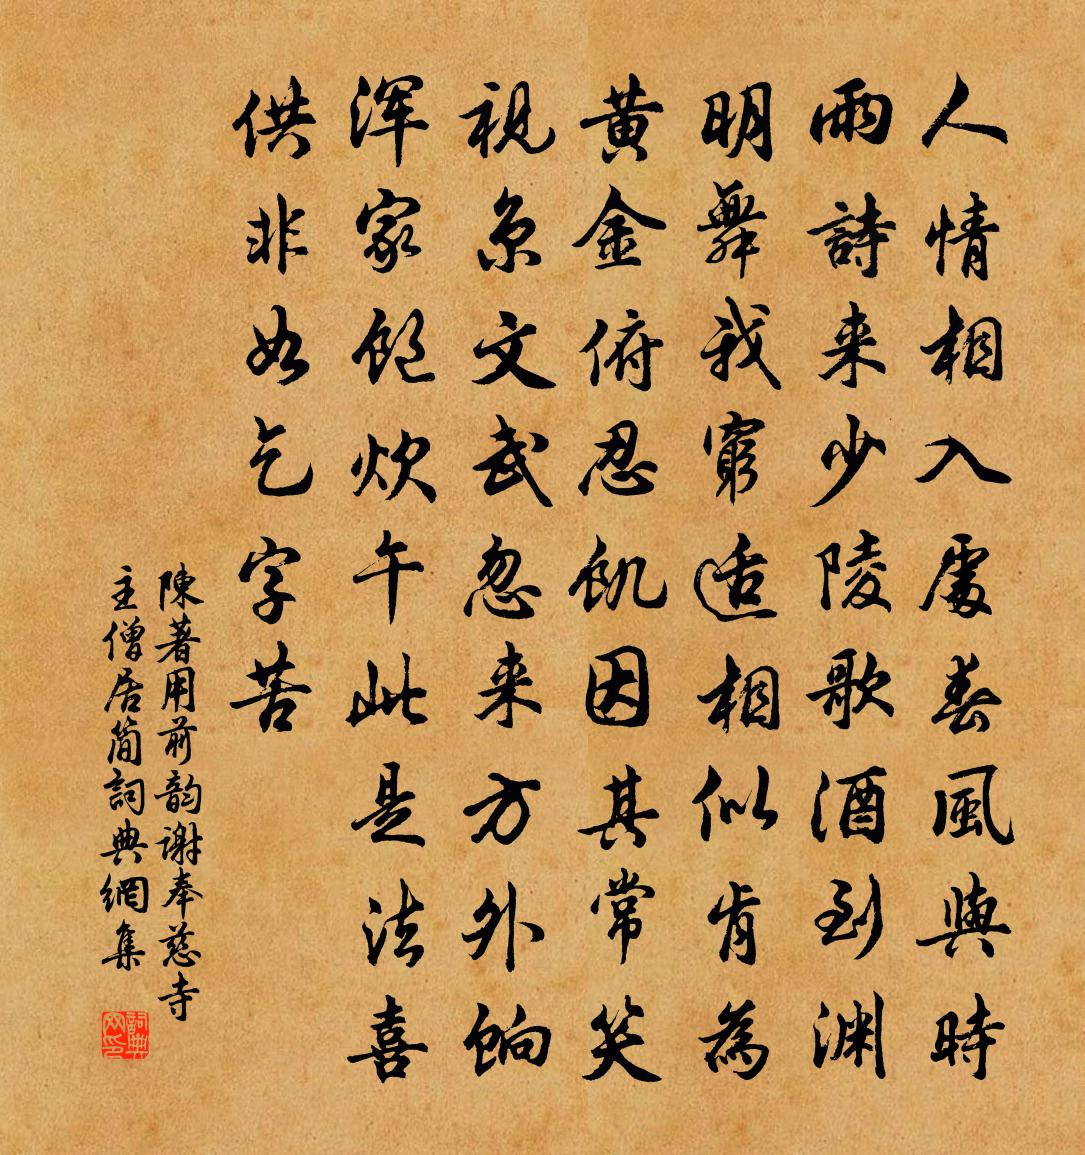 人情相入處春風與時
雨詩来少陵歌酒到渊
明舞我窮适相似肯為
黄金俯忍飢因其常笑
視京文武忽来方外餉
浑家饱炊午此是法喜
供非如乞字苦
陳著用前韵谢奉慈寺
主僧居简詞典網集
詞典網印